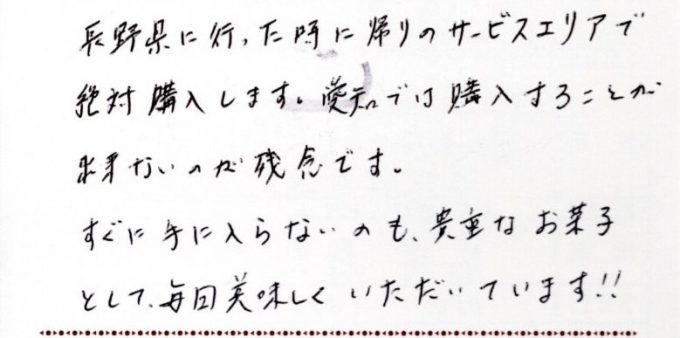 長野県に行った時に帰りのサービスエリアで
絶対購入します。愛知では購入することが
出来ないのが残念です。
すぐに手に入らないのも、貴重なお菓子
として、毎回美味しくいただいています!!